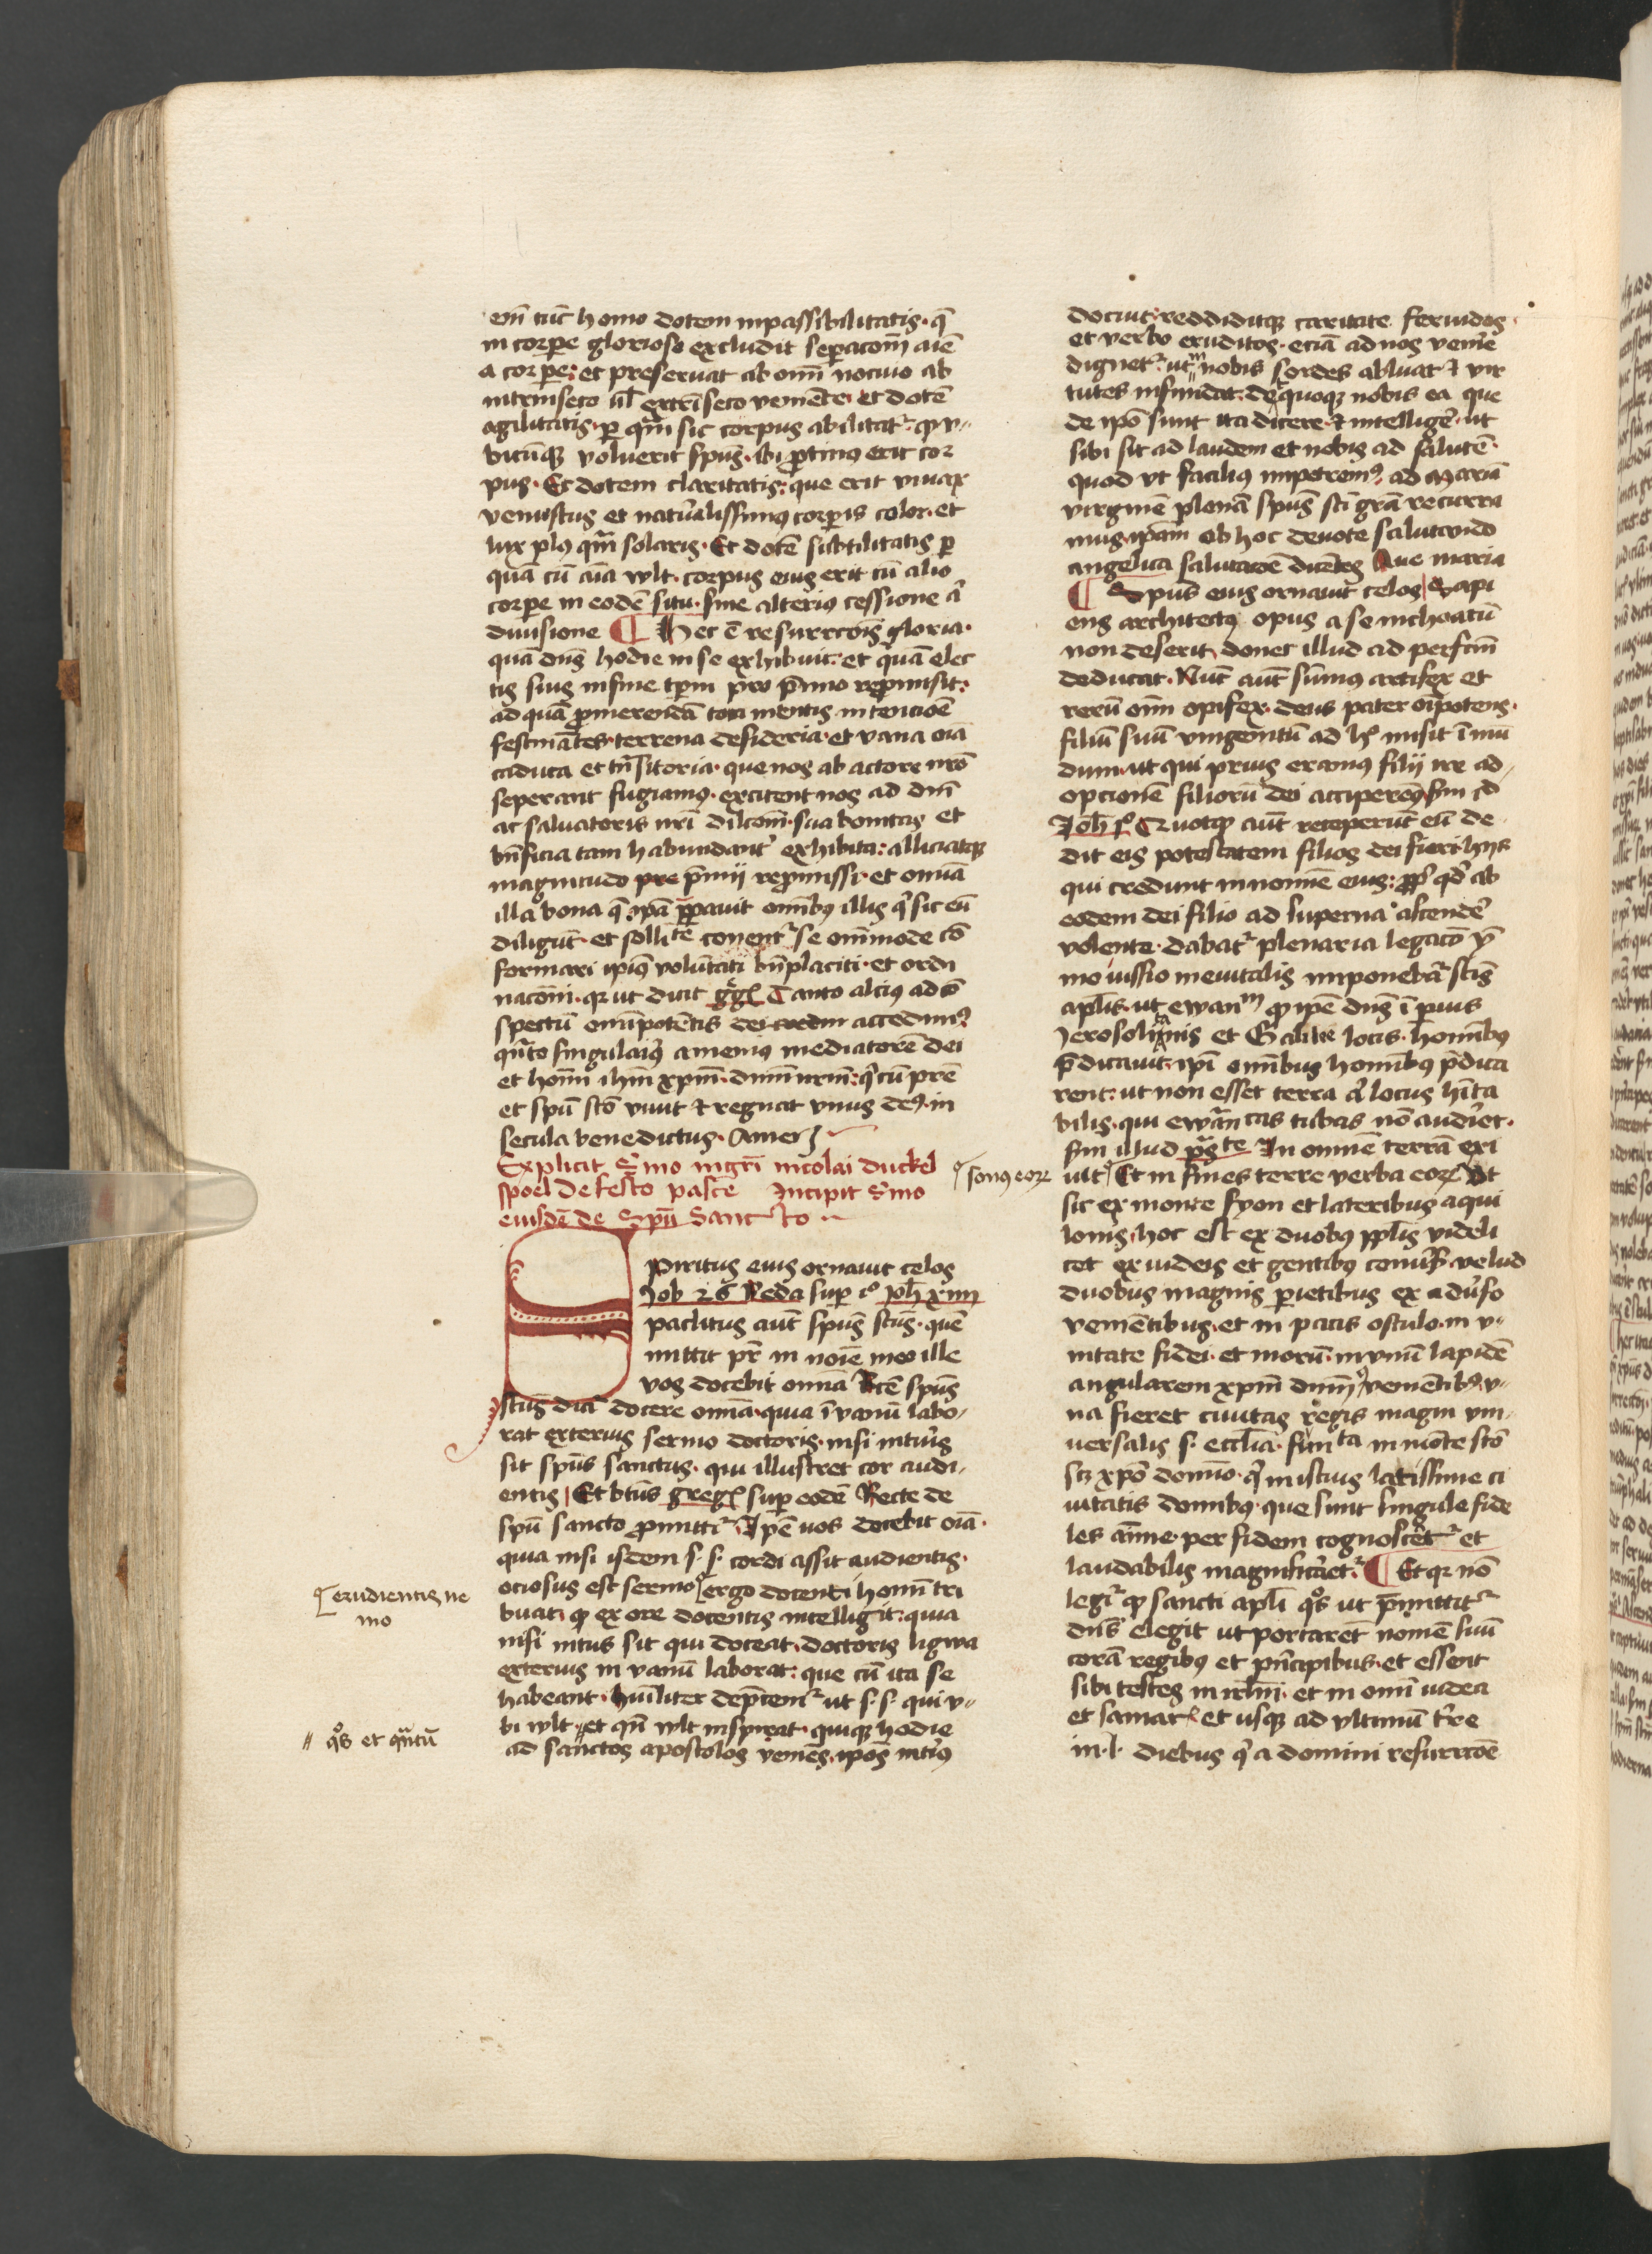 em̄ tūc homo dotem inpassibilitatis · q̄
in corꝑe glorioso excludit seꝑacōm̄ aīe
a corꝑe : et preseruat ab om̄i nociuo ab
intrinseco ul̄ extrīseco veniēte · et dotē
agilitatis · ꝑ quā sic corpus abilitatᷣ · qꝫ v
bicūqꝫ voluerit spūs · ibi ꝓtinus erit cor
pus · Et dotem claritatis : que erit viuax
venustus et nat᷑alissimus corꝑis color · et
lux plꝰ qm̄ solaris · Et dotē subtilitatis ꝑ
quā cū aīa wlt · corpus eius erit cū alio
corꝑe in eodē situ · sine alterius cessione a᷑
diuisione ¶ Hec ē resurrcōis gloria ·
quā dn̄s hodie in se exhibuit : et quā elec
tis suis in fine tꝑm pro p̄mio repromisit :
ad quā ꝓmerendā tota mentis intencioē
festinātes · terrena desideria · et vana oīa
caduca et trāsitoria · que nos ab actore nr̄o
seperant fugiamꝰ · excitent nos ad dn̄i
ac saluatoris nr̄i dilcōm̄ · sua bonitas et
bn̄ficia tam habundant᷑ exhibita : alliciatqꝫ
magnitudo pre p̄mij repromissi · et omīa
illa bona q̄ ip̄ā p̄ꝑauit omībꝰ illis q᷑ sic eū
diligūt · et sollite conentᷣ se omīmode cō
formari ipiꝰ volūtati bn̄placiti · et ordi
nacōni · qꝛ ut dicit gg᷑ Tanto alcius ad cō
spectū omīpotētis dei accedimꝰ
qn̄to singulariꝰ amemus mediatorē dei
et homī ihm̄ xpm̄ · dnm̄ nrm̄ : q᷑ cū pr̄e
et spū scō viuit et regnat vnus deꝰ · in
secula benedictus · Amen
Explicit Smo mgr̄i nicolai duckel
spoel de festo pasce Incipit Smo
eiusdē de Spū Sancto
Spiritus eius ornauit celos
Job 26 Beda suꝑ iᵒ Joh xiiii
paclitus aūt spūs scūs · quē
mittit pr̄ in noīe meo ille
vos docebit omīa Rcē spūs
scūs dicit᷑ docere omīa · quia ī vanū labo
rat exterius sermo doctoris · nisi interius
sit spūs sanctus · qui illustret cor audi
entis | Et btūs greg᷑ suꝑ eodē Recte de
spū sancto ꝓmittit᷑ · Ip̄e uos docebit oīa ·
quia nisi isdem s · s · cordi assit audientis ·
ociosus est sermo ergo docenti homī tri
buat · qꝫ ex ore docentis intelligit : quia
nisi intus sit qui doceat · doctoris ligwa
exterius in vanū laborat : que cū ita se
habeant · hūiliter dep̄cemᷣ ut s · s · qui v
bi wlt · et qn̄ wlt inspireat · quiqꝫ hodie
ad sanctos apostolos veniēs · ipōs inteꝰ
erudientis ne
mo
qᵒs et quātū
docuit : reddiditqꝫ caritate feruidos ·
et verbo eruditos · eciā ad nos venire
dignetᷣ · ut nobis sordes abluat et vir
tutes infundat : de quoqꝫ nobis ea que
de ipō sunt ita dicere · et intellige᷑ · ut
sibi sit ad laudem et nobis ad salutē ·
quod vt facilius impetremꝰ · ad Mariā
virginē plenā spūs sci grā recurra
mus · ipām ob hoc deuote salutando
angelica salutacōē dicētes Aue maria
¶ Spūs eius ornauit celos | Sapi
ens architectꝰ opus a se inchoatū
non deserit · donec illud ad perfcm̄
deducat · Nūc aūt sūmus artifex et
rerū om̄i opifex · deus pater oīpotens ·
filiū suū vnigenitū ad hᵒ misit ī mū
dum · ut qui prius eramus filij ire ad
opcionē filiorū dei acciperemꝰ sm̄ id
Joh iᵒ Quotqꝫ aūt receperūt eū de
dit eis potestatem filios dei fieri hijs
qui credunt in nomīe eius : ꝓp̄ qd̄ ab
eodem dei filio ad superna ascende᷑
volente · dabatᷣ plenaria legacō ȳ
mo iussio ineuitalis imponebat᷑ scīs
aplīs · ut ewanᵐ qꝫ ipē dn̄s ī prius
Jerosolimis et Galilee locis · hominibꝰ
p̄dicauit · ipī omībus hominibꝰ p̄dica
rent : ut non esset terra a᷑ locus hīta
bilis · qui ewāicas tubas nō audiret ·
sm̄ illud psᵗᵉ In omnē terrā exi
uit Et in fines terre verba eoꝝ Ut
sic ex monte syon et lateribus aqui
lonis · hoc est ex duobꝰ pplis videli
cet ex iudeis et gentibus conu᷑si · velud
duobus magnis parietibus ex aduerso
veniētibus · et in pacis osculo · in v
nitate fidei · et morū · in vnū lapidē
angularem xpm̄ dnm̄ veniētibꝰ · v
na fieret ciuitas regis magni vni
uersalis s · ecclīa · sūta in mōte scō
scꝫ xpō domīo · q᷑ in istius latissime ci
uitatis domibꝰ · que sunt singule fide
les anīme · per fidem cognoscēt᷑ et
laudabilis magnificaret᷑ ¶ Et qꝛ nō
legit᷑ qꝫ sancti aplī qᵒs ut p̄mittit᷑
dn̄s elegit ut portarēt nomē suū
corā regibꝰ et prīcipibus · et essent
sibi testes in irl̄m · et in omī iudea
et samar᷑ et usqꝫ ad vltimū tr̄re
in · l · diebus q᷑ a domini resurrcōē
sonꝰ eoꝝ